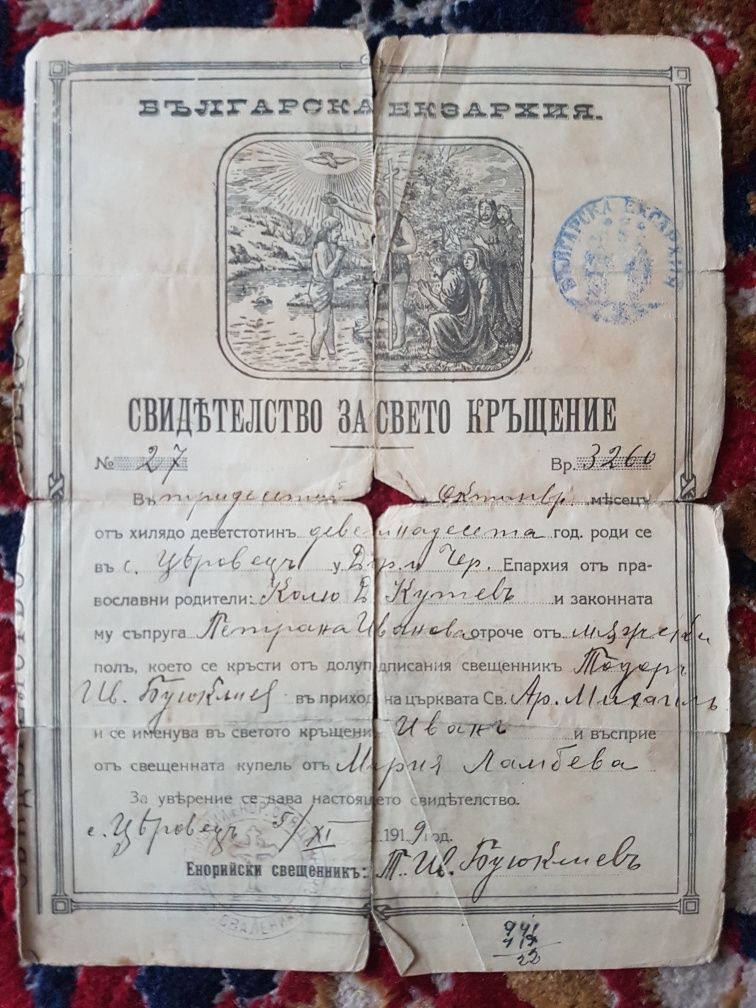 БЪЛГАРСКА ЕКЗАРХИЯ.
БЪЛГАРСКА ЕКЗАРХИЯ
СВИДѢТЕЛСТВО ЗА СВЕТО КРЪЩЕНИЕ
№ 27 Вр. 3260
Въ тридесетий октомвр. мѣсецъ
отъ хилядо деветстотинъ деветнадесета год. роди се
въ с. Цѣровецъ у. Епархия отъ пра-
вославни родители: Колю Д Кутевъ и законната
му съпруга Петрана Иванова отроче отъ мѫжски
полъ, което се кръсти отъ долуподписания свещенникъ Тодоръ
Ив. Буюклиев въ приход на църквата Св. Ар. Михаилъ
и се именува въ светото кръщение Иванъ и въсприе
отъ свещенната купель отъ Мария Ламбева
За увѣрение се дава настоящето свидѣтелство.
с. Цѣровецъ 5/XI 1919 год.
Енорийски свещенникъ: Т. Ив. Буюклиевъ
941
22